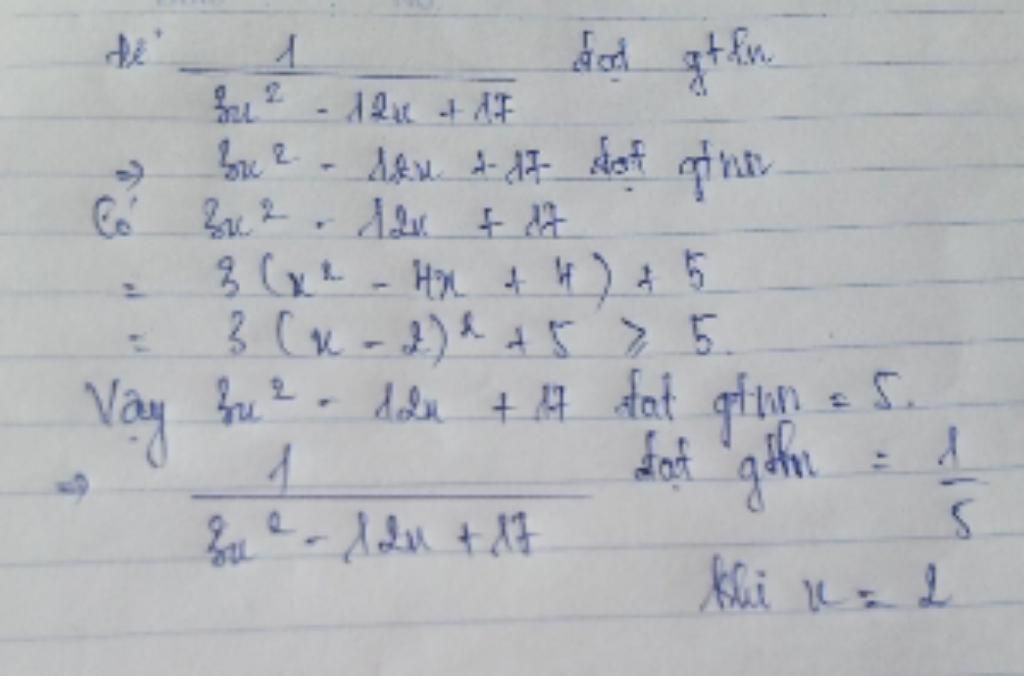 Để 1/(3x² - 12x + 17) đạt gtln
⇒ 3x² - 12x + 17 đạt gtnn
Có 3x² - 12x + 17
= 3(x² - 4x + 4) + 5
= 3(x - 2)² + 5 ≥ 5.
Vậy 3x² - 12x + 17 đạt gtnn = 5.
⇒ 1/(3x² - 12x + 17) đạt gtln = 1/5
khi x = 2